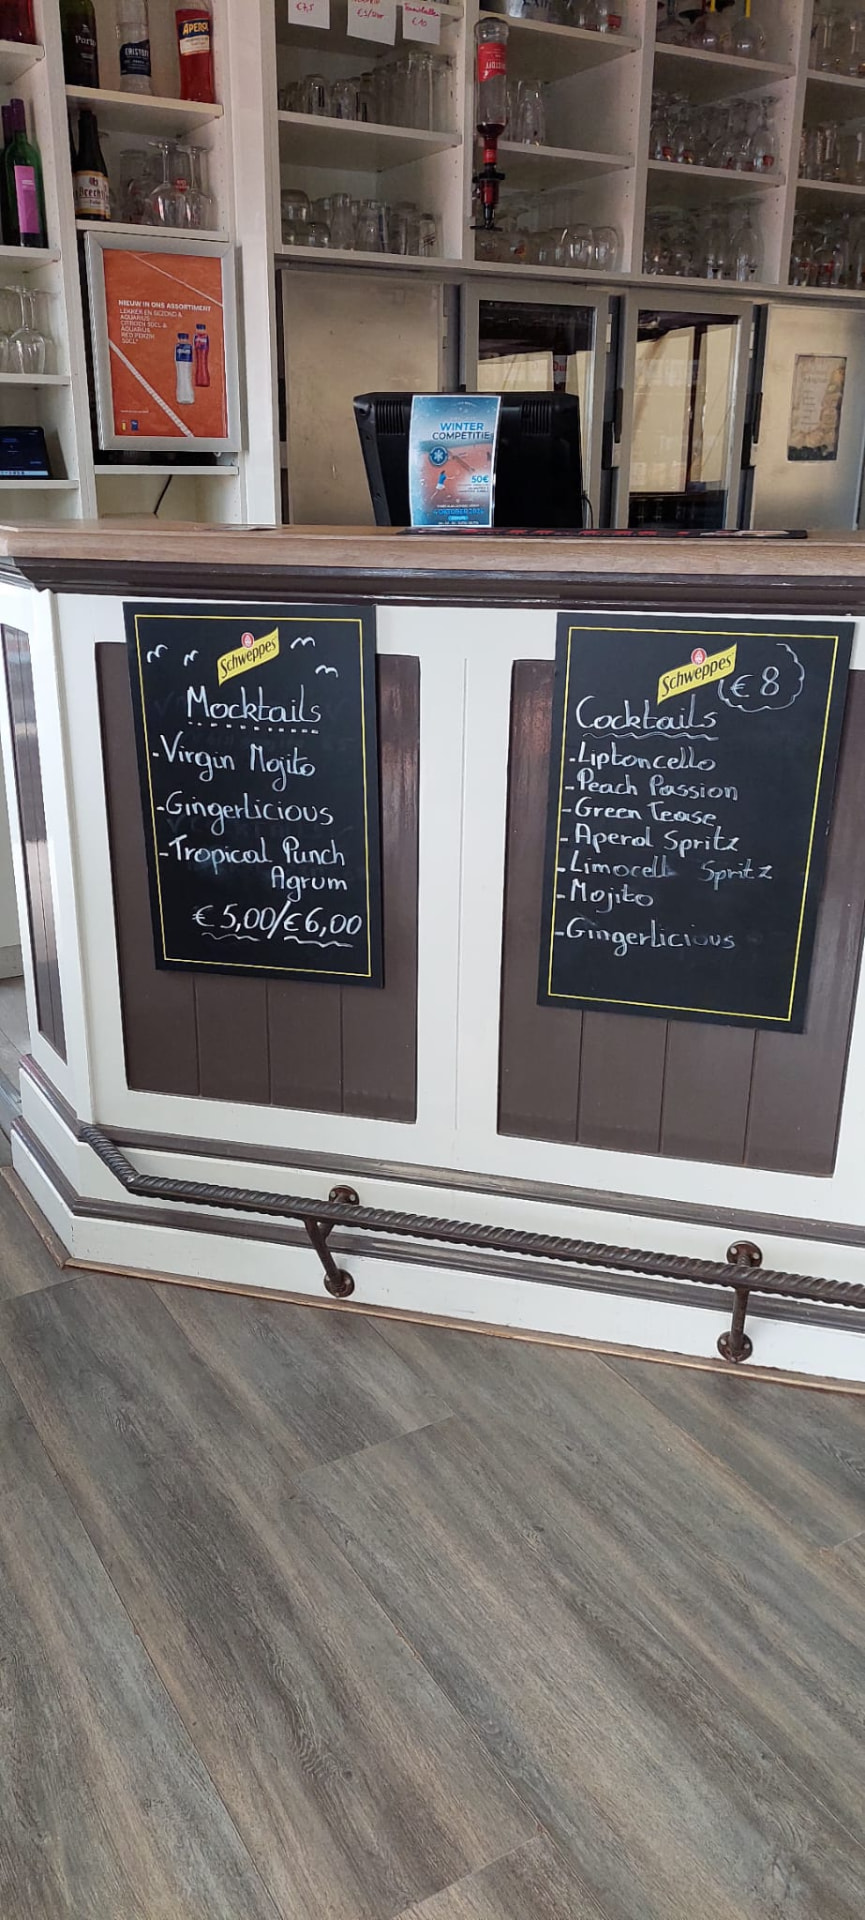 €7,5
€10
Porto
CRISTOFF
APERO
NIEUW IN ONS ASSORTIMENT
LEKKER EN GEZOND &
AQUARIUS
CITROEN 50CL &
AQUARIUS
RED PERZIK
50CL
WINTER
COMPETITIE
50€
Schweppes
Mocktails
-Virgin Mojito
-Gingerlicious
-Tropical Punch
Agrum
€ 5,00/€6,00
Schweppes
€ 8
Cocktails
-Liptoncello
-Peach Passion
-Green Tease
-Aperol Spritz
-Limocell Spritz
-Mojito
-Gingerlicious